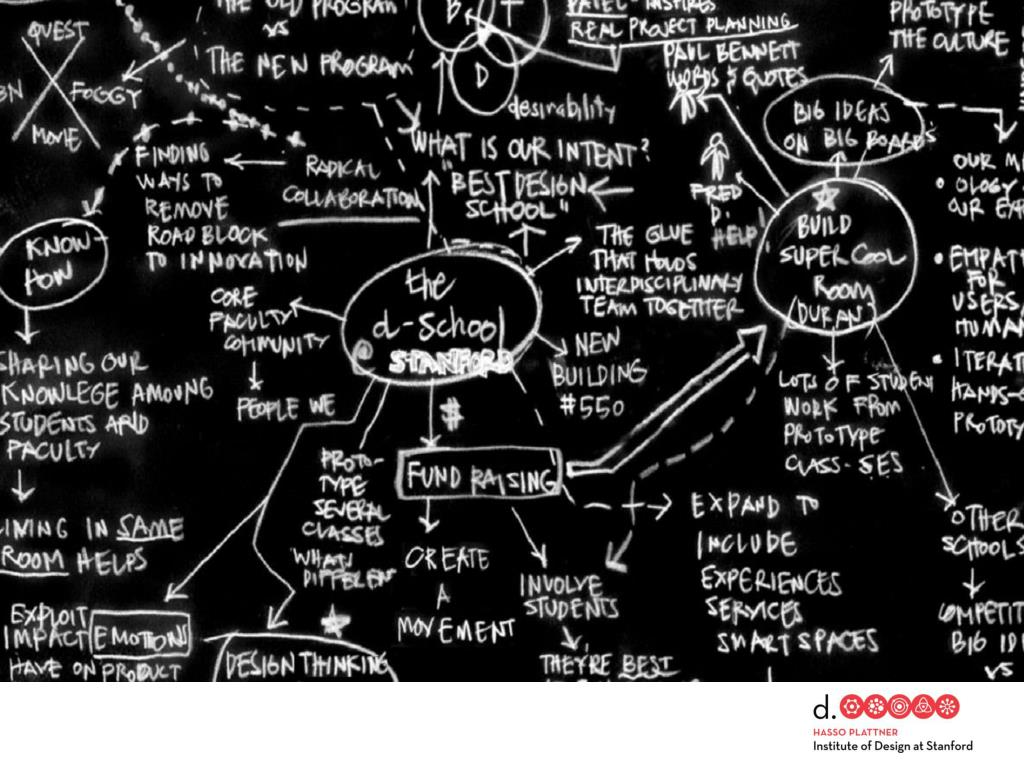 THE OLD PROGRAM
VS
THE NEW PROGRAM
QUEST
FOGGY
MOVIE
B
T
D
desirability
INSPIRES
REAL PROJECT PLANNING
PAUL BENNETT
WORDS & QUOTES
PROTOTYPE
THE CULTURE
BIG IDEAS
ON BIG BOARDS
FINDING
WAYS TO
REMOVE
ROAD BLOCK
TO INNOVATION
RADICAL
COLLABORATION
WHAT IS OUR INTENT?
"BEST DESIGN
SCHOOL"
FRED
D.
HELP
THE GLUE
THAT HOLDS
INTERDISCIPLINARY
TEAM TOGETHER
BUILD
SUPER COOL
ROOM
(DURAN)
OUR M
• OLOGY
OUR EX
• EMPAT
FOR
USERS
HUMAN
• ITERAT
HANDS-
PROTOTY
KNOW-
HOW
CORE
FACULTY
COMMUNITY
PEOPLE WE
the
d-School
STANFORD
NEW
BUILDING
#550
SHARING OUR
KNOWLEGE AMOUNG
STUDENTS AND
FACULTY
LIVING IN SAME
ROOM HELPS
EXPLOIT
IMPACT EMOTIONS
HAVE ON PRODUCT
$
FUND RAISING
PROTO-
TYPE
SEVERAL
CLASSES
WHATS
DIFFEREN
DESIGN THINKING
CREATE
A
MOVEMENT
INVOLVE
STUDENTS
THEY'RE BEST
LOTS OF STUDENT
WORK FROM
PROTOTYPE
CLASS-SES
EXPAND TO
INCLUDE
EXPERIENCES
SERVICES
SMART SPACES
OTHER
SCHOOLS
COMPETIT
BIG ID
VS
d.
HASSO PLATTNER
Institute of Design at Stanford